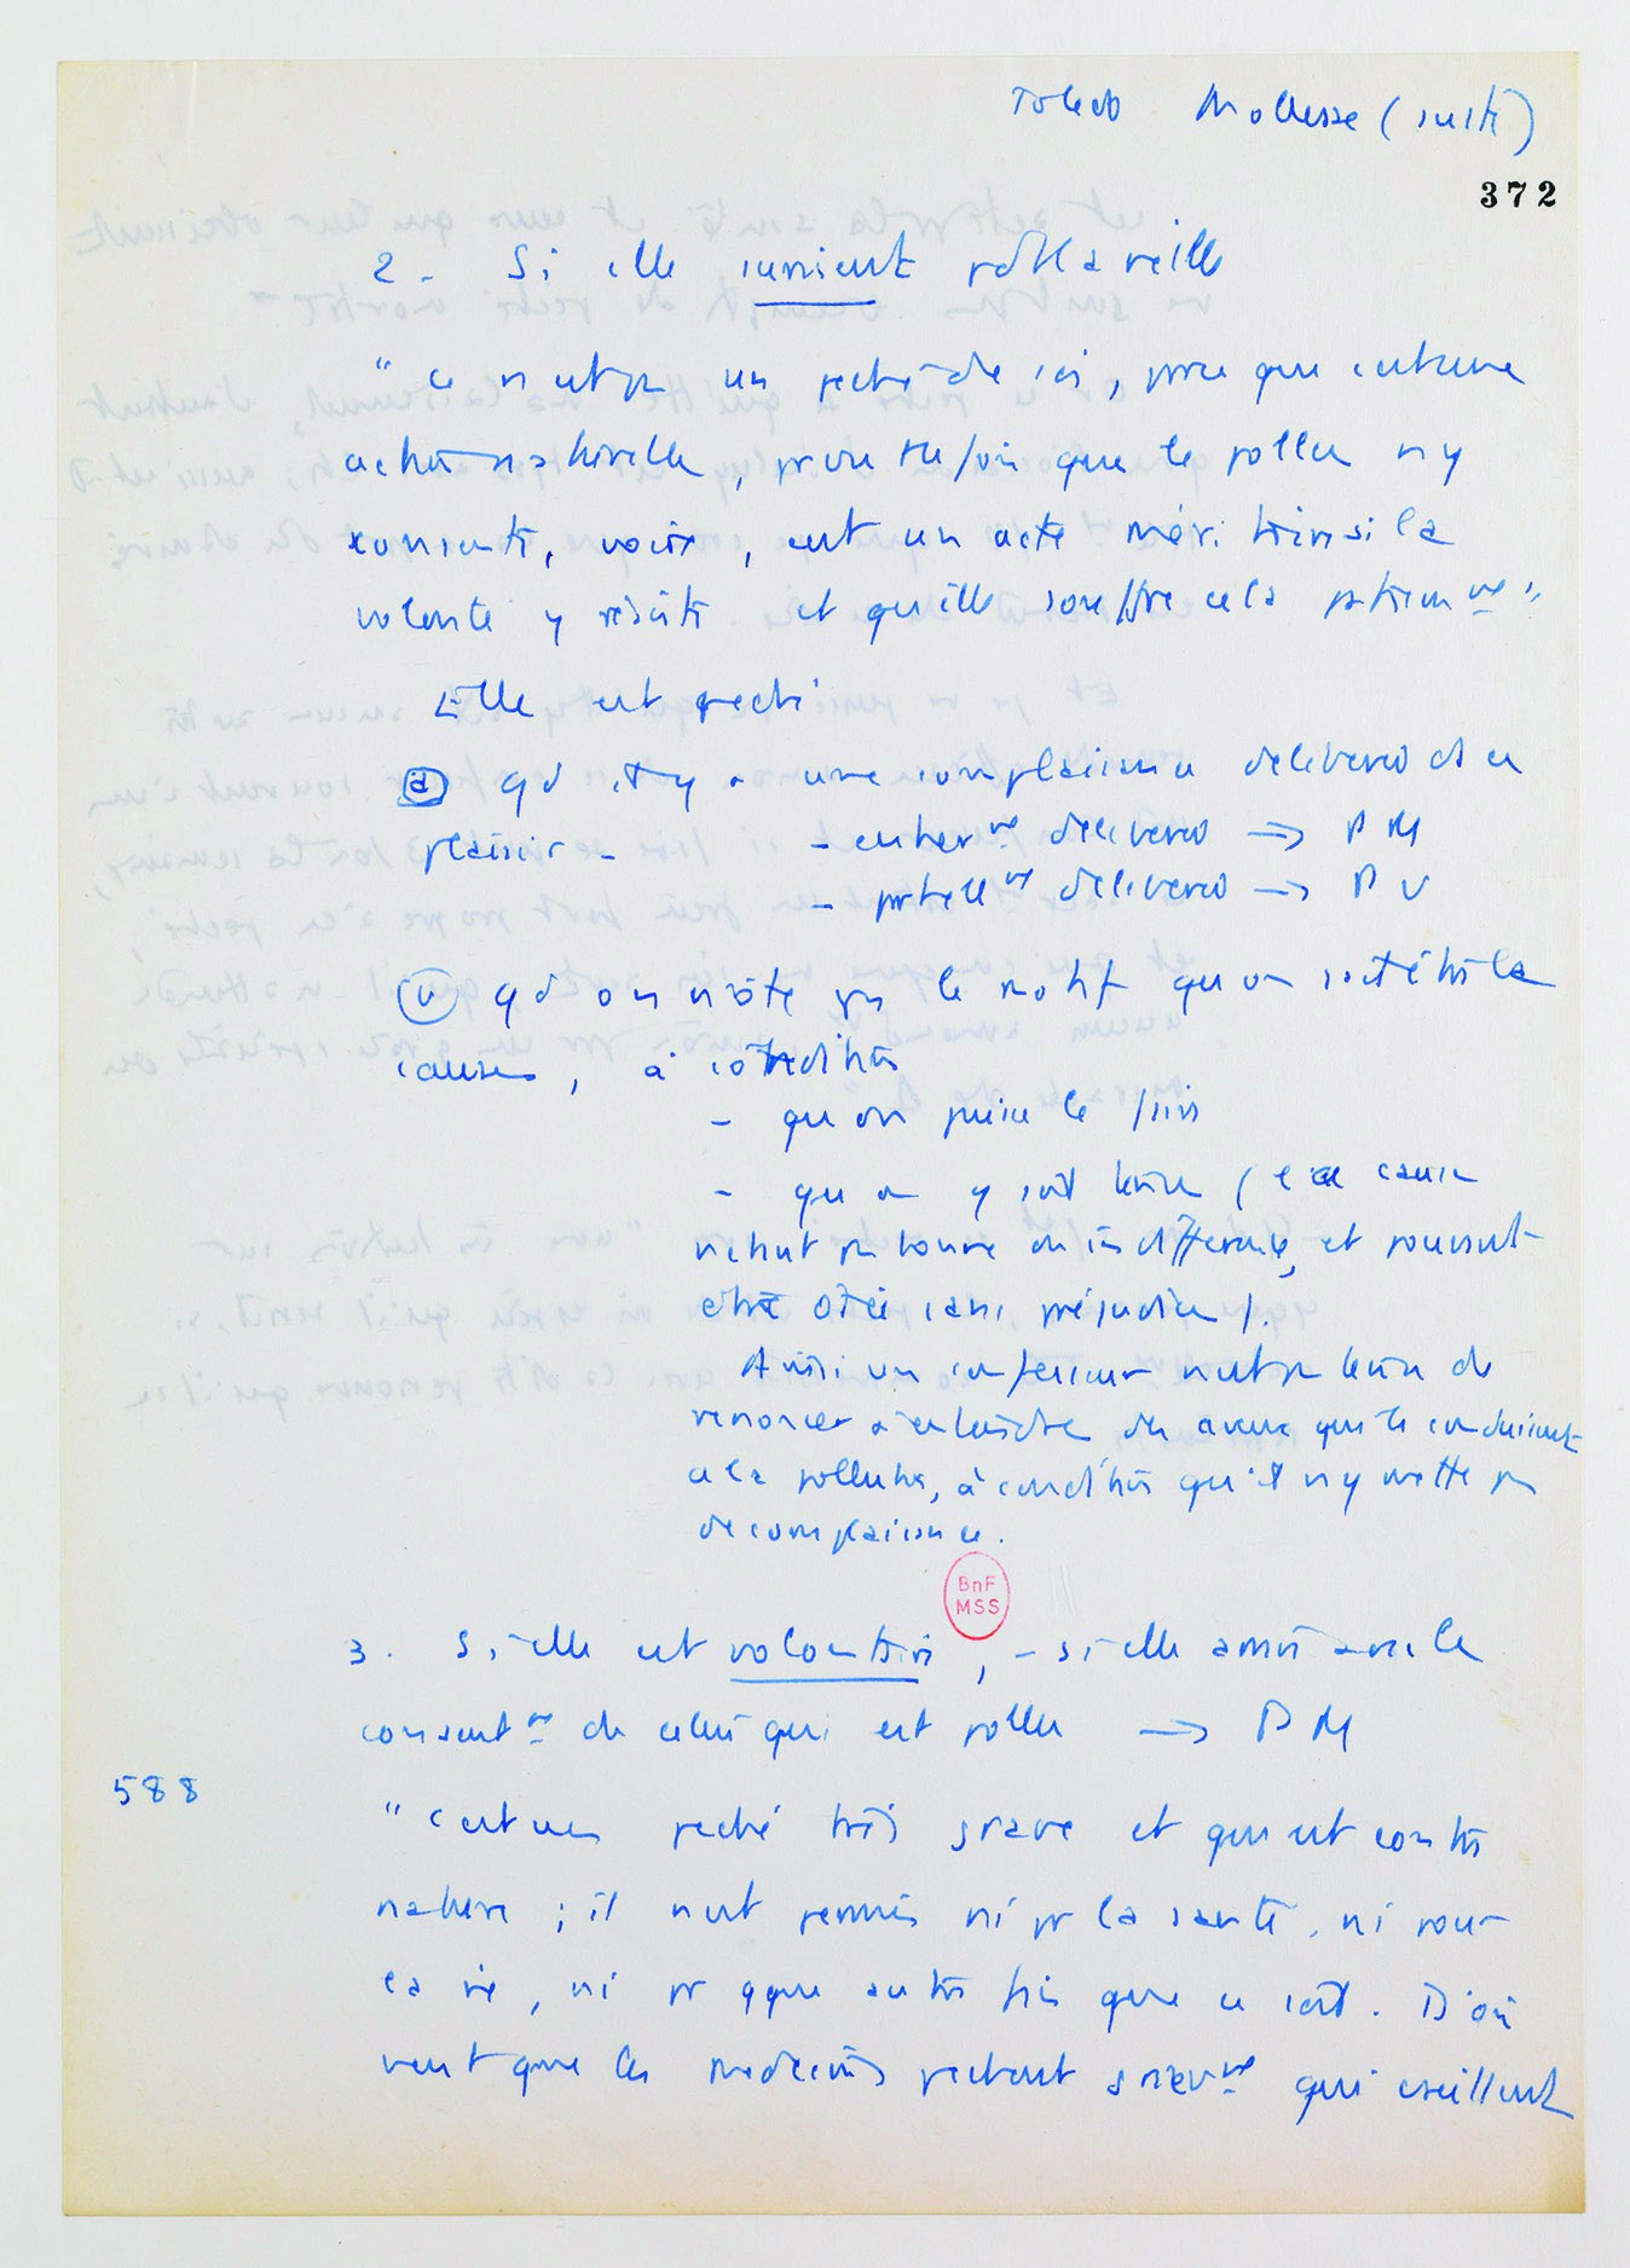 Toledo Mollesse (suite)
372
2 - Si elle survient pdt la veille
" ce n'est pas un péché de soi, parce que c'est une
action naturelle, pourvu que le pollu n'y
consente, voire, c'est un acte méritoire si la
volonté y résiste. et qu'elle souffre cela patiemmt "
Elle est péché
a qd il y a une complaisance délibérée ds ce
plaisir - - entiermt délibérée → PM
- partiellmt délibérée → PV
b qd on n'ôte pas le motif qu'on sait être la
cause, à condition
- qu'on puisse le faire
- qu'on y soit tenu (la cause
n'étant pas bonne ou indifférente, et pouvant
être ôtée sans préjudice).
Ainsi un confesseur n'est pas tenu de
renoncer à entendre des aveux qui le conduisent
à la pollution, à condition qu'il n'y mette pas
de complaisance.
BnF
MSS
3. Si elle est volontaire, - si elle arrive avec le
consentmt de celui qui est pollu → PM
588
" C'est un péché très grave et qui est contre
nature ; il n'est permis ni pr la santé, ni pour
la vie, ni pr qque autre fin que ce soit. D'où
vient que les médecins pèchent gravmt qui cseillent